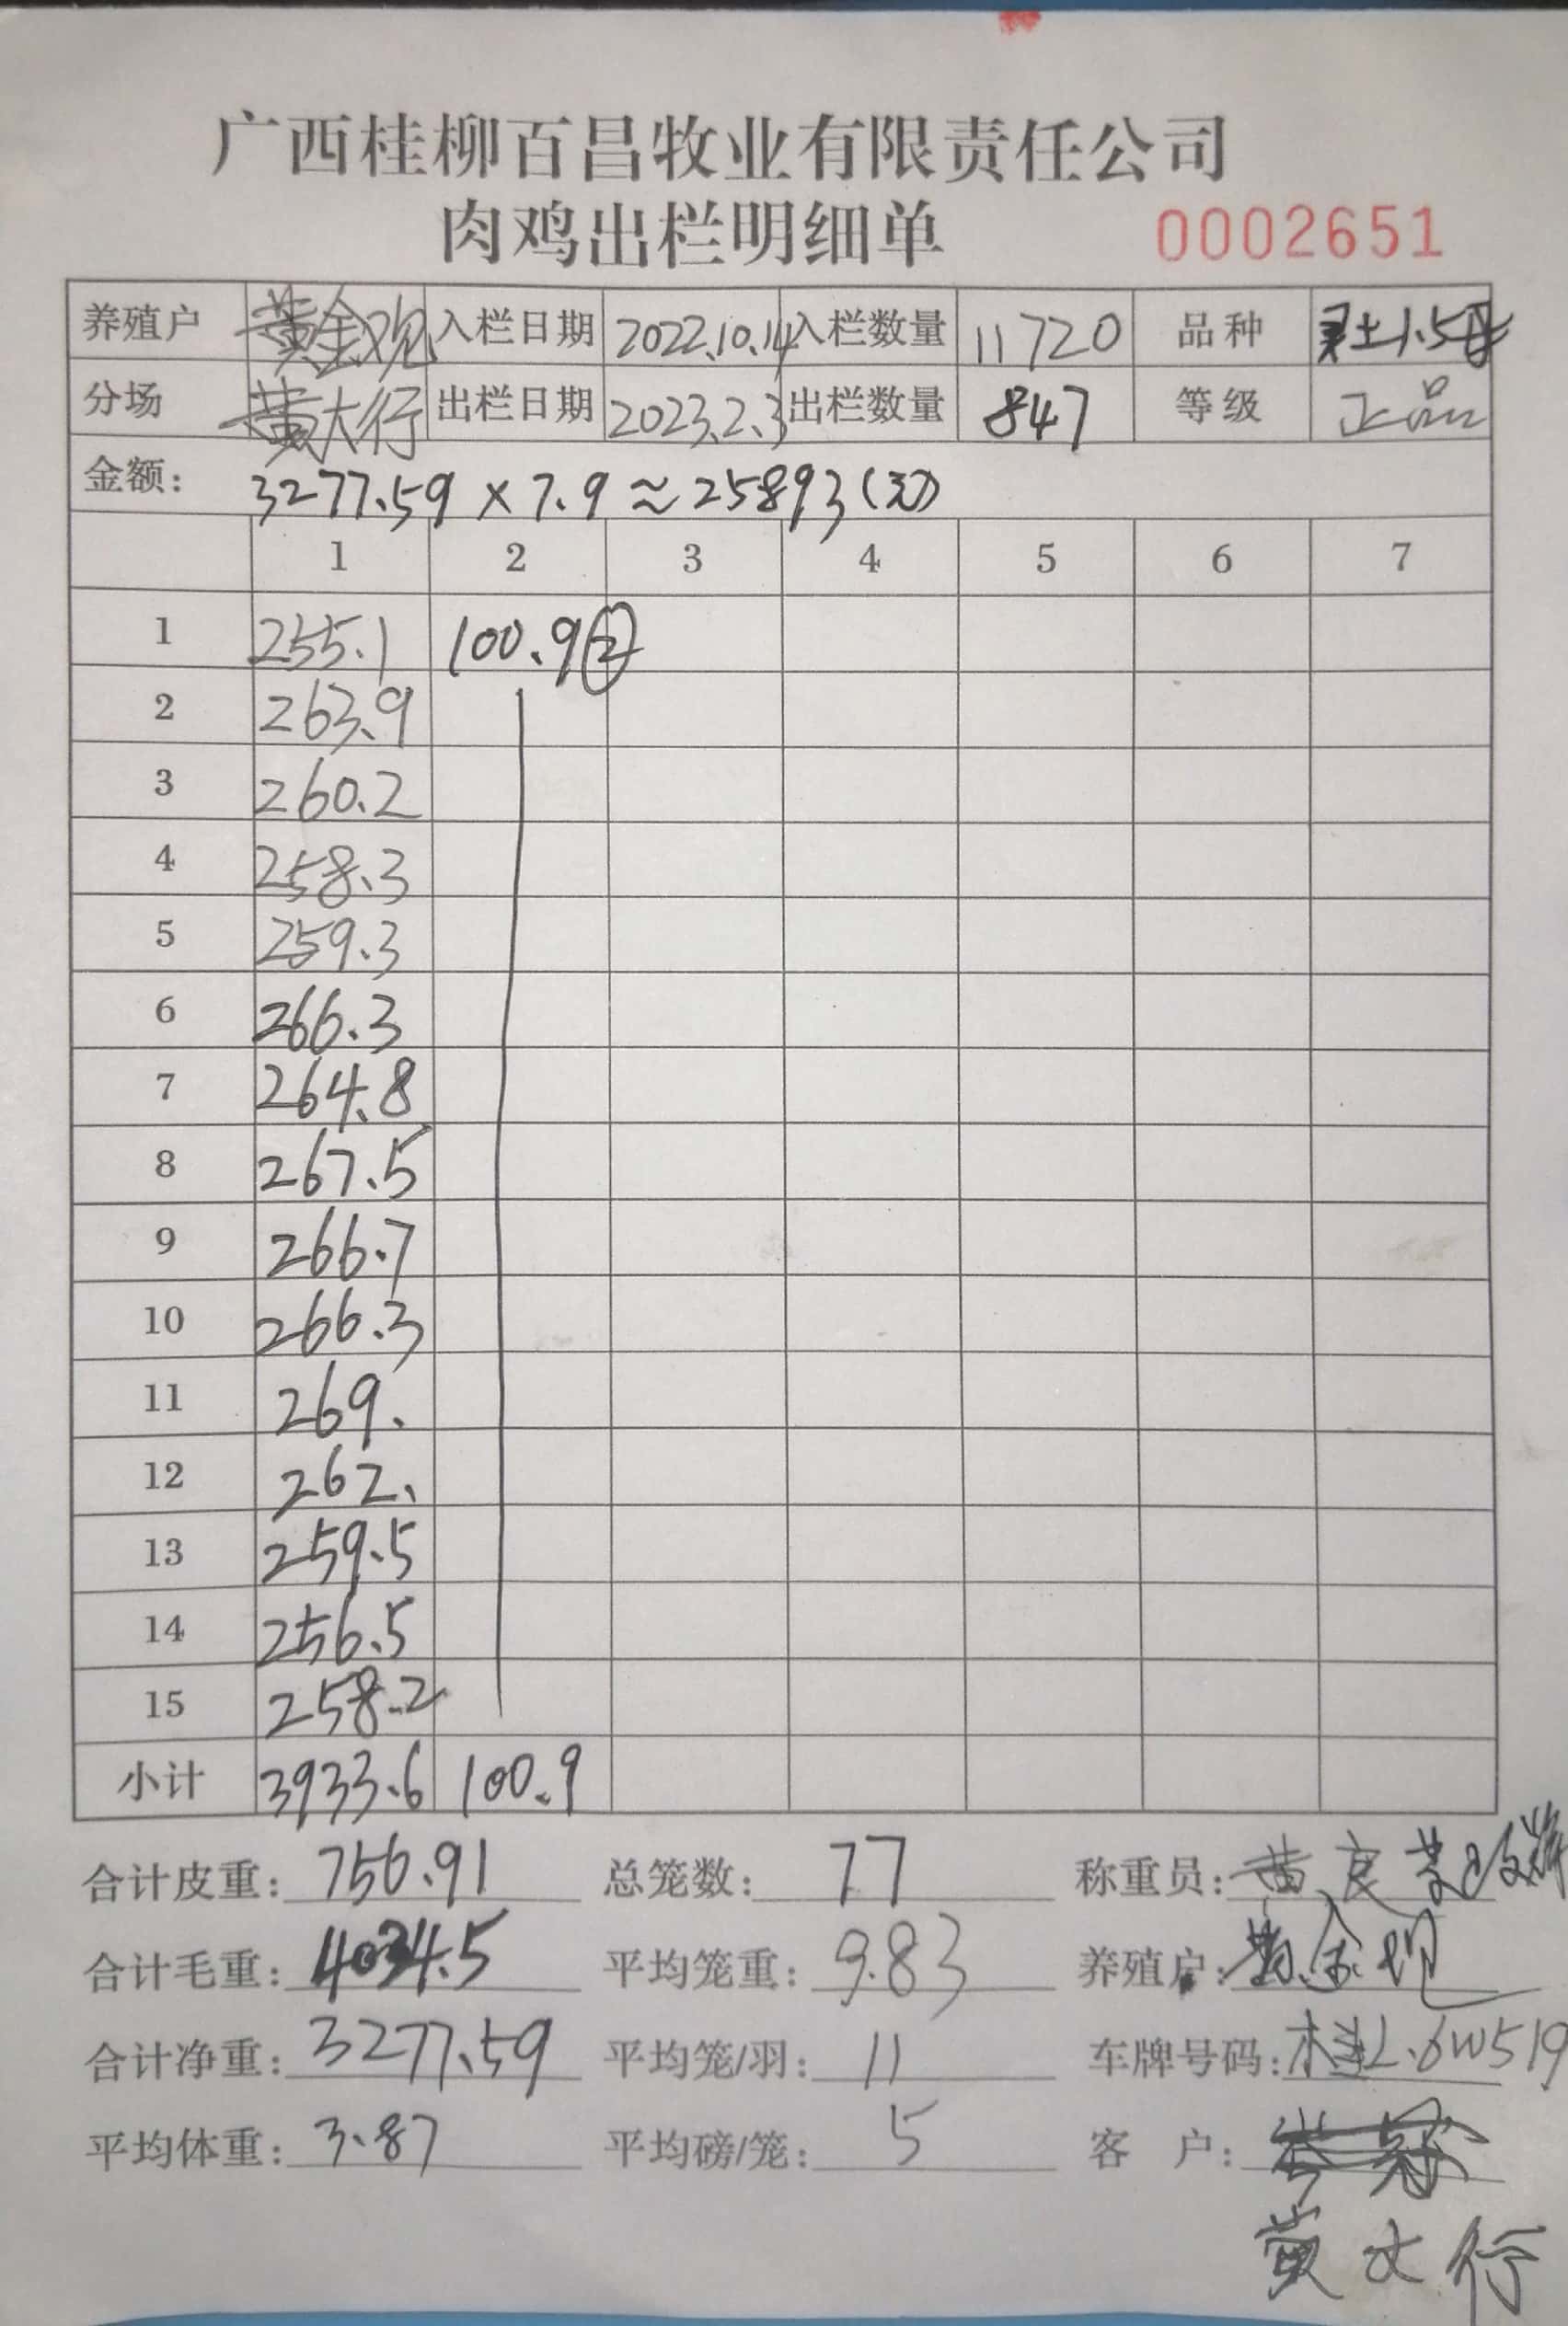 广西桂柳百昌牧业有限责任公司
肉鸡出栏明细单 0002651
养殖户 黄金观 入栏日期 2022.10.14 入栏数量 11720 品种 土1.5母
分场 黄大行 出栏日期 2023.2.3 出栏数量 847 等级 正品
金额: 3277.59 × 7.9 ≈ 25893(元)
1 2 3 4 5 6 7
1 255.1 100.9②
2 263.9
3 260.2
4 258.3
5 259.3
6 266.3
7 264.8
8 267.5
9 266.7
10 266.3
11 269.
12 262.
13 259.5
14 256.5
15 258.2
小计 3933.6 100.9
合计皮重: 756.91 总笼数: 77 称重员: 黄良
合计毛重: 4034.5 平均笼重: 9.83 养殖户: 黄金观
合计净重: 3277.59 平均笼/羽: 11 车牌号码: 桂L.6W519
平均体重: 3.87 平均磅/笼: 5 客 户:
黄大行